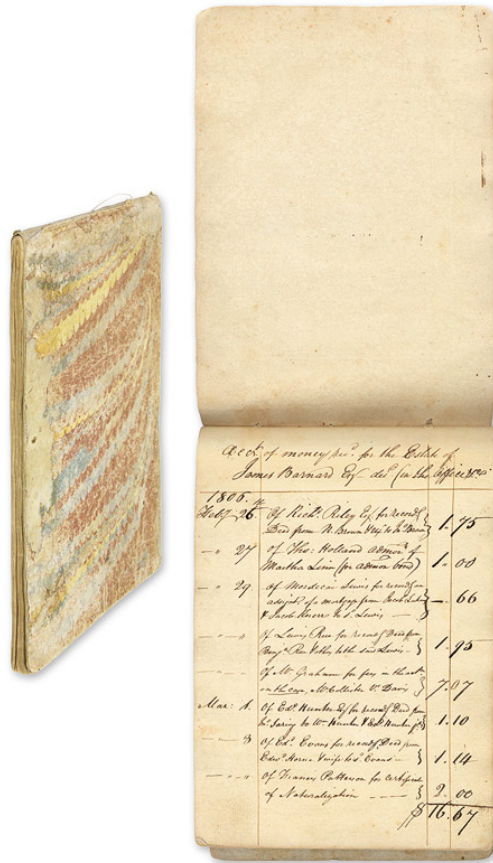 Acct. of money rec'd. for the Estate of
James Barnard Esq. dec'd (in the office &c.)
1806.
Feby. 26. Of Richd. Riley Esq. for record'g
Deed from N. Brown & 1.75
— " 27 Of Thos: Holland admor. of
Martha Levin (for admon bond) } 1.00
— " 29 of Mordecai Lewis for record'g an
assignt. of a mortgage from Jacob
& Jacob to sd. Lewis — } — .66
— " — " Of Lewis Rue for record'g Deed from
Benjn. Rue & others to the said Lewis — } 1.95
— " — " Of Mr. Graham for fees in the
in the case, McCollister Vs. Davis } 7.07
Mar: 1. Of Edd. Hunter Esq. for record'g Deed from
to Wm. Hunter & Edd. Hunter } 1.10
— " 3 Of Edd. Evans for record'g Deed from
Edwd. Horne & wife to sd. Evans — } 1.14
— " — " Of Francis Patterson for certificat
of Naturalization — — — — } 2.00
$ 16.67